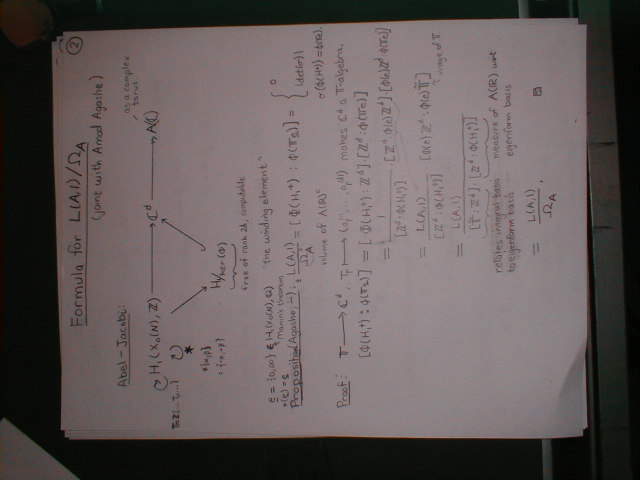 ②
Formula for L(A,1)/Ω_A
(joint with Amod Agashe)
Abel-Jacobi:
as a complex torus
H₁(X₀(N),ℤ) → ℂ^d → A(ℂ)
𝕋=ℤ[...T_n...]
*
*{α,β}
={-α,-β}
H/ker(Φ)
free of rank 2d, computable
e = {0,∞} ∈ H₁(X₀(N),ℚ) "the winding element"
*(e) = e
Manin's theorem
Proposition (Agashe, -): L(A,1)/Ω_A = [Φ(H₁⁺) : Φ(𝕋e)] = { 0
|det(σ)|
σ(Φ(H⁺)) = Φ(𝕋e).
volume of A(ℝ)⁰
Proof: 𝕋 → ℂ^d, T_p ↦ (a_p^(1),...,a_p^(d)) makes ℂ^d a 𝕋-algebra.
[Φ(H₁⁺) : Φ(𝕋e)] = [Φ(H₁⁺) : ℤ^d]·[ℤ^d : Φ(𝕋e)]
= 1/[ℤ^d : Φ(H₁⁺)] · [ℤ^d : Φ(e)ℤ^d]·[Φ(e)ℤ^d : Φ(𝕋e)]
= L(A,1)/[ℤ^d : Φ(H₁⁺)] · [Φ(e)ℤ^d : Φ(e)𝕋̃]
image of 𝕋
= L(A,1)/[𝕋̃ : ℤ^d]·[ℤ^d : Φ(H₁⁺)]
relates integral basis to eigenform basis
measure of A(ℝ) wrt eigenform basis
= L(A,1)/Ω_A .